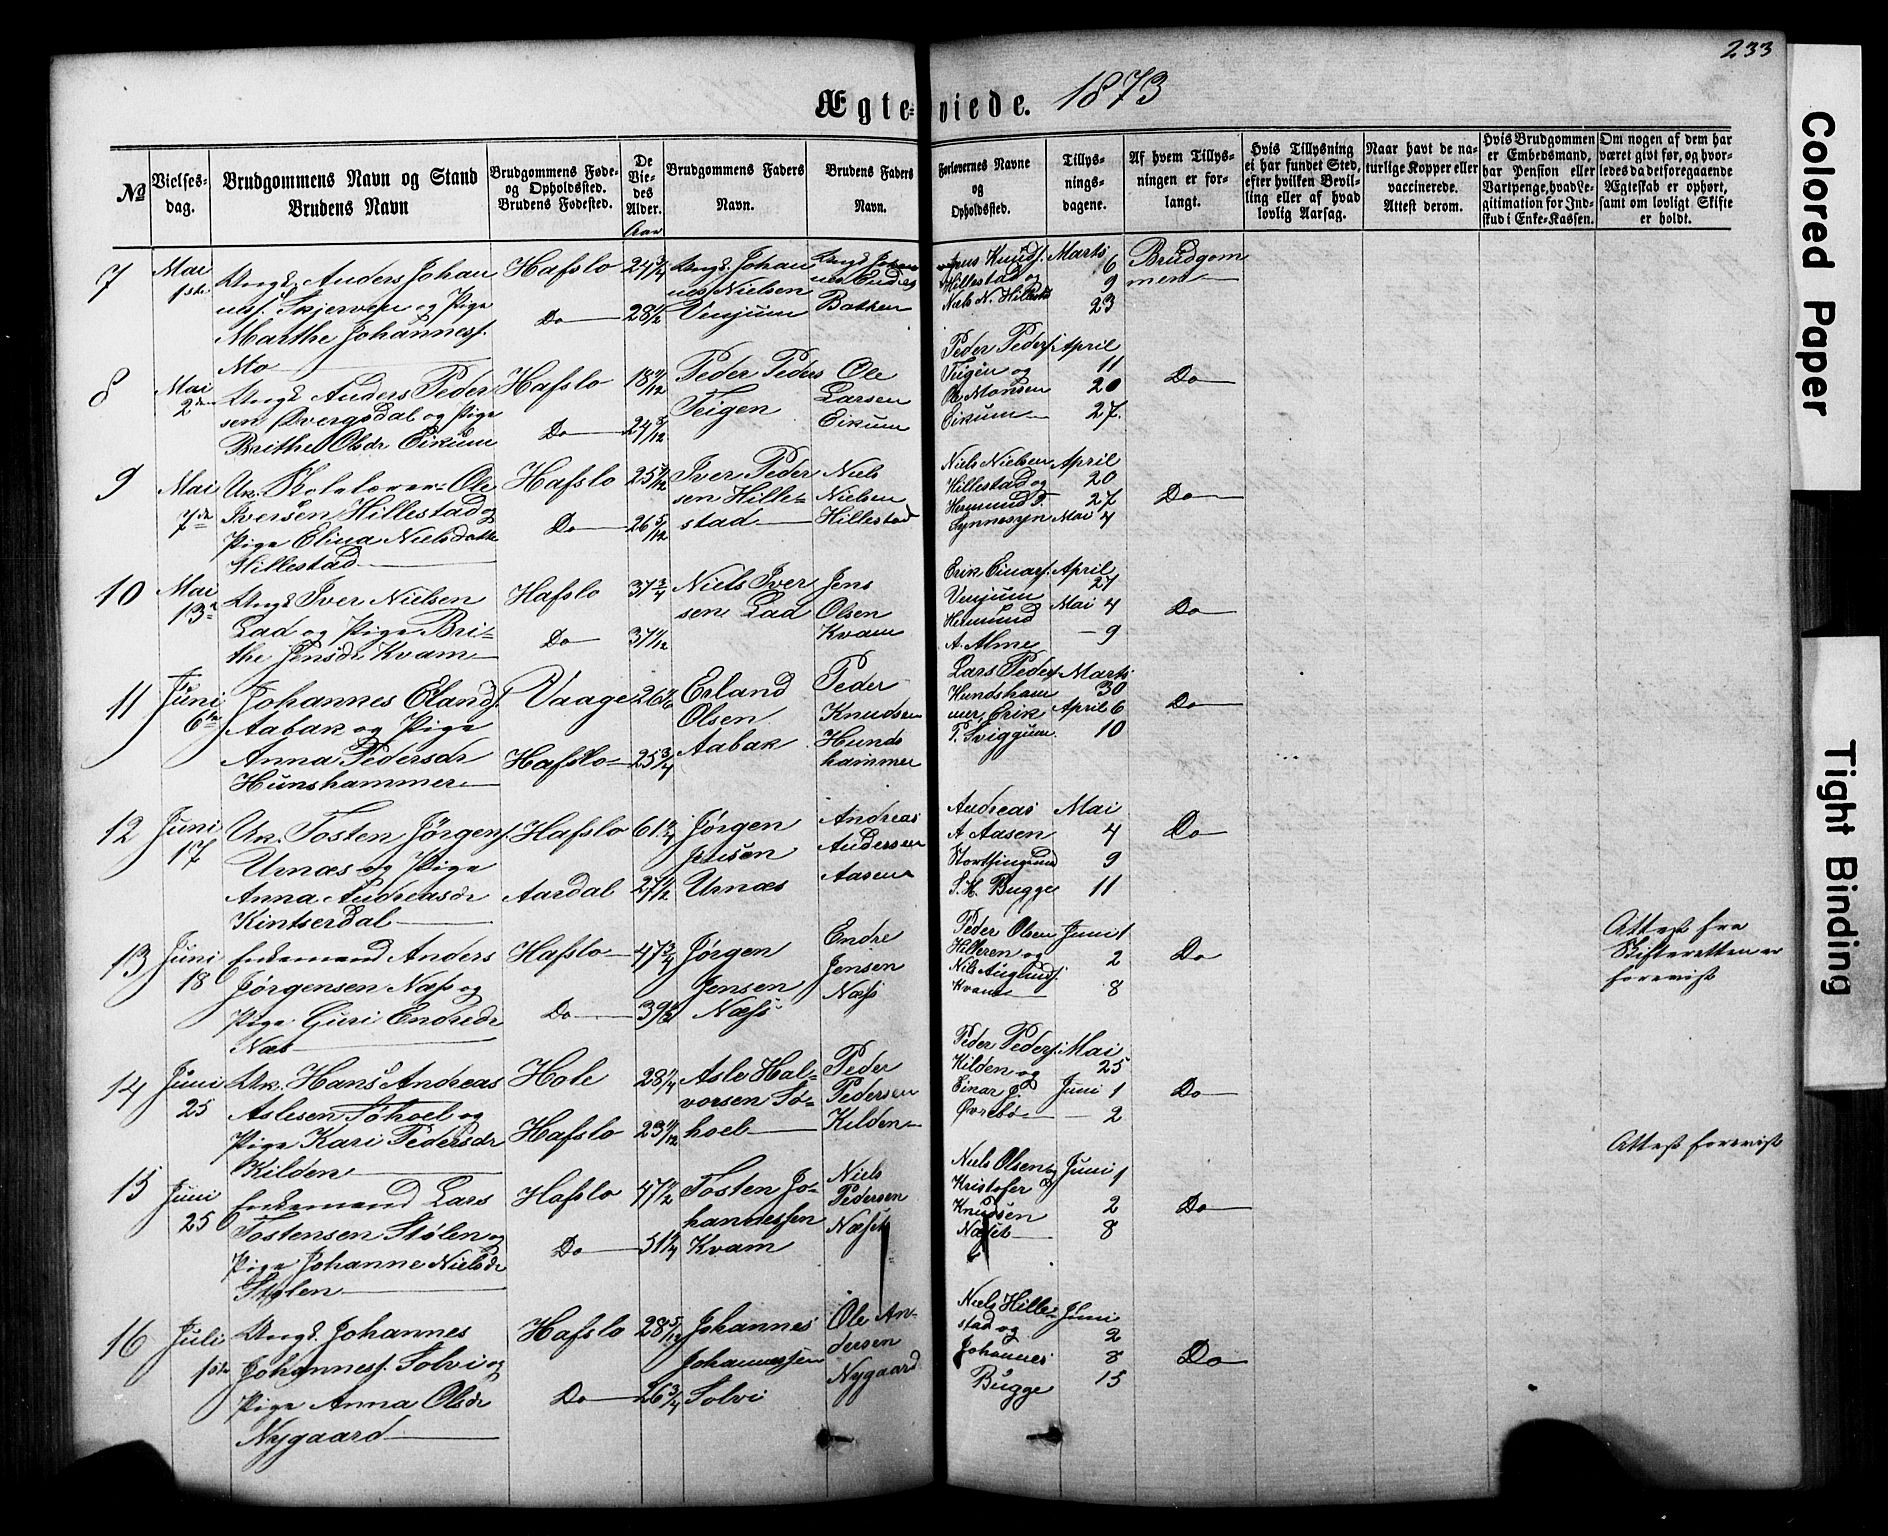 233
Ægteviede. 1873
№
Vielses-
dag.
Brudgommens Navn og Stand
Brudens Navn
Brudgommens Føde-
og Opholdssted.
Brudens Fødested.
De
Vie-
des
Alder.
Aar
Brudgommens Faders
Navn.
Brudens Faders
Navn.
Forlovernes Navne
og
Opholdssted.
Tillys-
nings-
dagene.
Af hvem Tillys-
ningen er for-
langt.
Hvis Tillysning
ei har fundet Sted,
efter hvilken Bevil-
ling eller af hvad
lovlig Aarsag.
Naar havt de na-
turlige Kopper eller
vaccinerede.
Attest derom.
Hvis Brudgommen
er Embedsmand,
har Pension eller
Vartpenge, hvad Le-
gitimation for Ind-
skud i Enke-Kassen.
Om nogen af dem har
været givt før, og hvor-
ledes da det foregaaende
Ægteskab er ophørt,
samt om lovligt Skifte
er holdt.
7
Mai
1ste
Ungk. Anders Johan
nesf. Skjerven og Pige
Marthe Johannesf.
Mo
Hafslo
Do
24 3/4
28 1/2
Ungk. Johan
nes Nielsen
Venjum
Endres
Batken
Knudsf.
Hillestad og
Niels N. Hillestad
Marts
6
9
23
Brudgom
men
8
Mai
2den
Ungk. Anders Peder
sen Dvergsdal og Pige
Brithe Olsdr Eikum
Hafslo
Do
18
24 5/12
Peder Peders
Teigen
Ole
Larsen
Eikum
Peder Pedersf.
Teigen og
Ole Monsen
Eikum
April
11
20
27.
Do
9
Mai
7de
Uk. Ole
Iversen Hillestad og
Pige Elina Nielsdatte
Hillestad
Hafslo
Do
25
26 5/12
Iver Peder
sen Hille-
stad
Niels
Nielsen
Hillestad
Niels Nielsen
Hillestad og
Hermund T.
Lynnesyn
April
20
27
Mai 4
Do
10
Mai
13
Ungk Iver Nielsen
Lad og Pige Bri-
the Jensdr Kvam
Hafslo
Do
37 3/4
37
Niels Iver
sen Lad
Jens
Olsen
Kvam
Erik Einarsf.
Venjum
Hermund
A. Alme
April
27
Mai 4
9
Do
11
Juni
6te
Johannes Elandsf.
Aabak og Pige
Anna Pedersdr
Hunshammer
Vaage
Hafslo
26
25 3/4
Erland
Olsen
Aabak
Peder
Knudsen
Hunds
hammer
Lars Pedersf.
Hundsham
mer, Erik
P. Sviggum.
Marts
30
April 6
10
Do
12
Juni
17
Uk. Tosten Jørgensf.
Urnæs og Pige
Anna Andreasdr
Kintserdal
Hafslo
Aardal
61
27
Jørgen
Jensen
Urnæs
Andreas
Andersen
Aasen
Andreas
A Aasen
Storthingsmd
S. H. Bugge
Mai
4
9
11
Do
13
Juni
18
Enkemand Anders
Jørgensen Næs og
Pige Guri Endredr
Næs
Hafslo
Do
47 3/4
39
Jørgen
Jensen
Næss
Endre
Jensen
Næss
Peder Olsen
Hilleren og
Nils
Kvam
Juni 1
2
8
Do
Attest fra
Skifteretten er
forevist
14
Juni
25
Uk. Hans Andreas
Aslesen Søhoel og
Pige Kari Pedersdr
Kilden
Hole
Hafslo
28 1/4
23
Asle Hal-
vorsen Sø-
hoel
Peder
Pedersen
Kilden
Peder Pedersf.
Kilden og
Einar J.
Øvrebø
Mai
25
Juni 1
2
Do
15
Juni
25
Enkemand Lars
Tostensen Stølen og
Pige Johanne Nielsdr
Stølen
Hafslo
Do
47
51
Tosten Jo-
hannessen
Kvam
Niels
Pedersen
Næset
Niels Olsen og
Kristofer
Knudsen
Næset
Juni 1
2
8
Do
Attest forevist
16
Juli
1ste
Ungk. Johannes
Johannesf. Solvi og
Pige Anna Olsdr
Nygaard
Hafslo
Do
28 5/12
26 3/4
Johannes
Johannessen
Solvi
Ole An-
dersen
Nygaard
Niels Hille-
stad og
Johannes
Bugge
Juni
2
8
15
Do
Colored Paper
Tight Binding